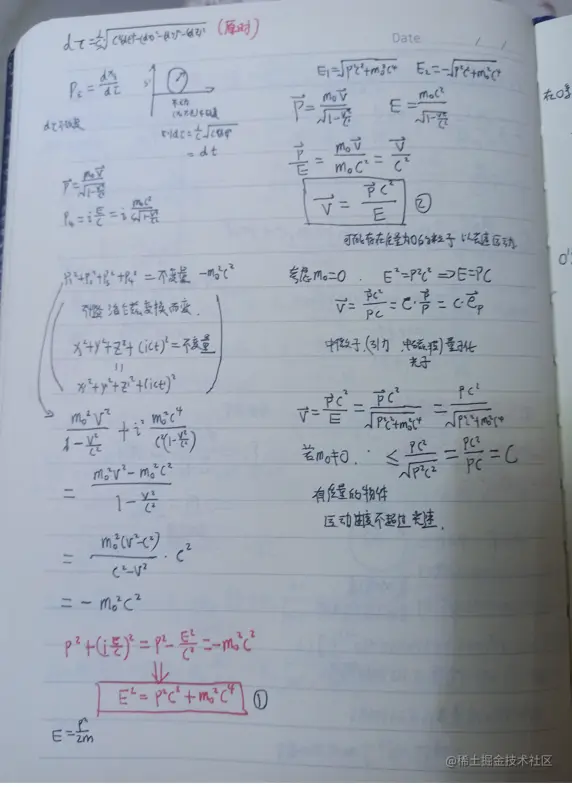 dτ=1/c √(c²(dt)²-(dx)²-(dy)²-(dz)²) (原时)
Date / /
P_s = dx_s/dτ
S'
= dt
P⃗ = m₀V⃗/√(1-v²/c²)
P₄ = i E/c = i m₀c²/(c√(1-v²/c²))
P₁²+P₂²+P₃²+P₄² = 不变量 -m₀²c²
x²+y²+z²+(ict)² = 不变量
=
x'²+y'²+z'²+(ict')²
m₀²v²/(1-v²/c²) + i² m₀²c⁴/(c²(1-v²/c²))
= (m₀²v²-m₀²c²)/(1-v²/c²)
= m₀²(v²-c²)/(c²-v²) · c²
= - m₀²c²
P²+(i E/c)² = P² - E²/c² = -m₀²c²
⇓
E² = P²c²+m₀²c⁴ ①
E = P²/2m
E₁=√(P²c²+m₀²c⁴) E₂=-√(P²c²+m₀²c⁴)
P⃗ = m₀V⃗/√(1-v²/c²) E = m₀c²/√(1-v²/c²)
P⃗/E = m₀V⃗/m₀c² = V⃗/c²
V⃗ = P⃗c²/E ②
可能存在质量为0的粒子 以光速运动
考虑m₀=0. E²=P²c² ⇒ E=PC
V⃗ = P⃗c²/PC = C·P⃗/P = C·e⃗_P
光子
V⃗ = P⃗c²/E = P⃗c²/√(P²c²+m₀²c⁴) = PC²/√(P²c²+m₀²c⁴)
若m₀≠0. ≤ PC²/√(P²c²) = PC²/PC = C
有质量的物体
运动速度不超过光速.
@稀土掘金技术社区